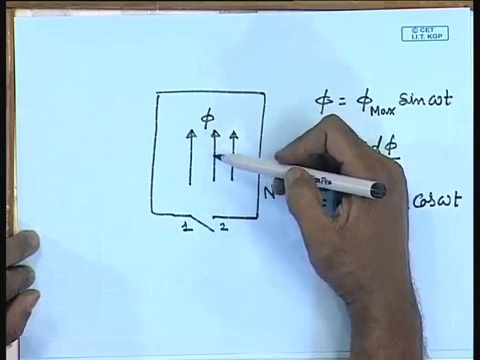 © CET
I.I.T. KGP
ϕ
ϕ = ϕ_Max sin ωt
dϕ
N
cos ωt
1 2